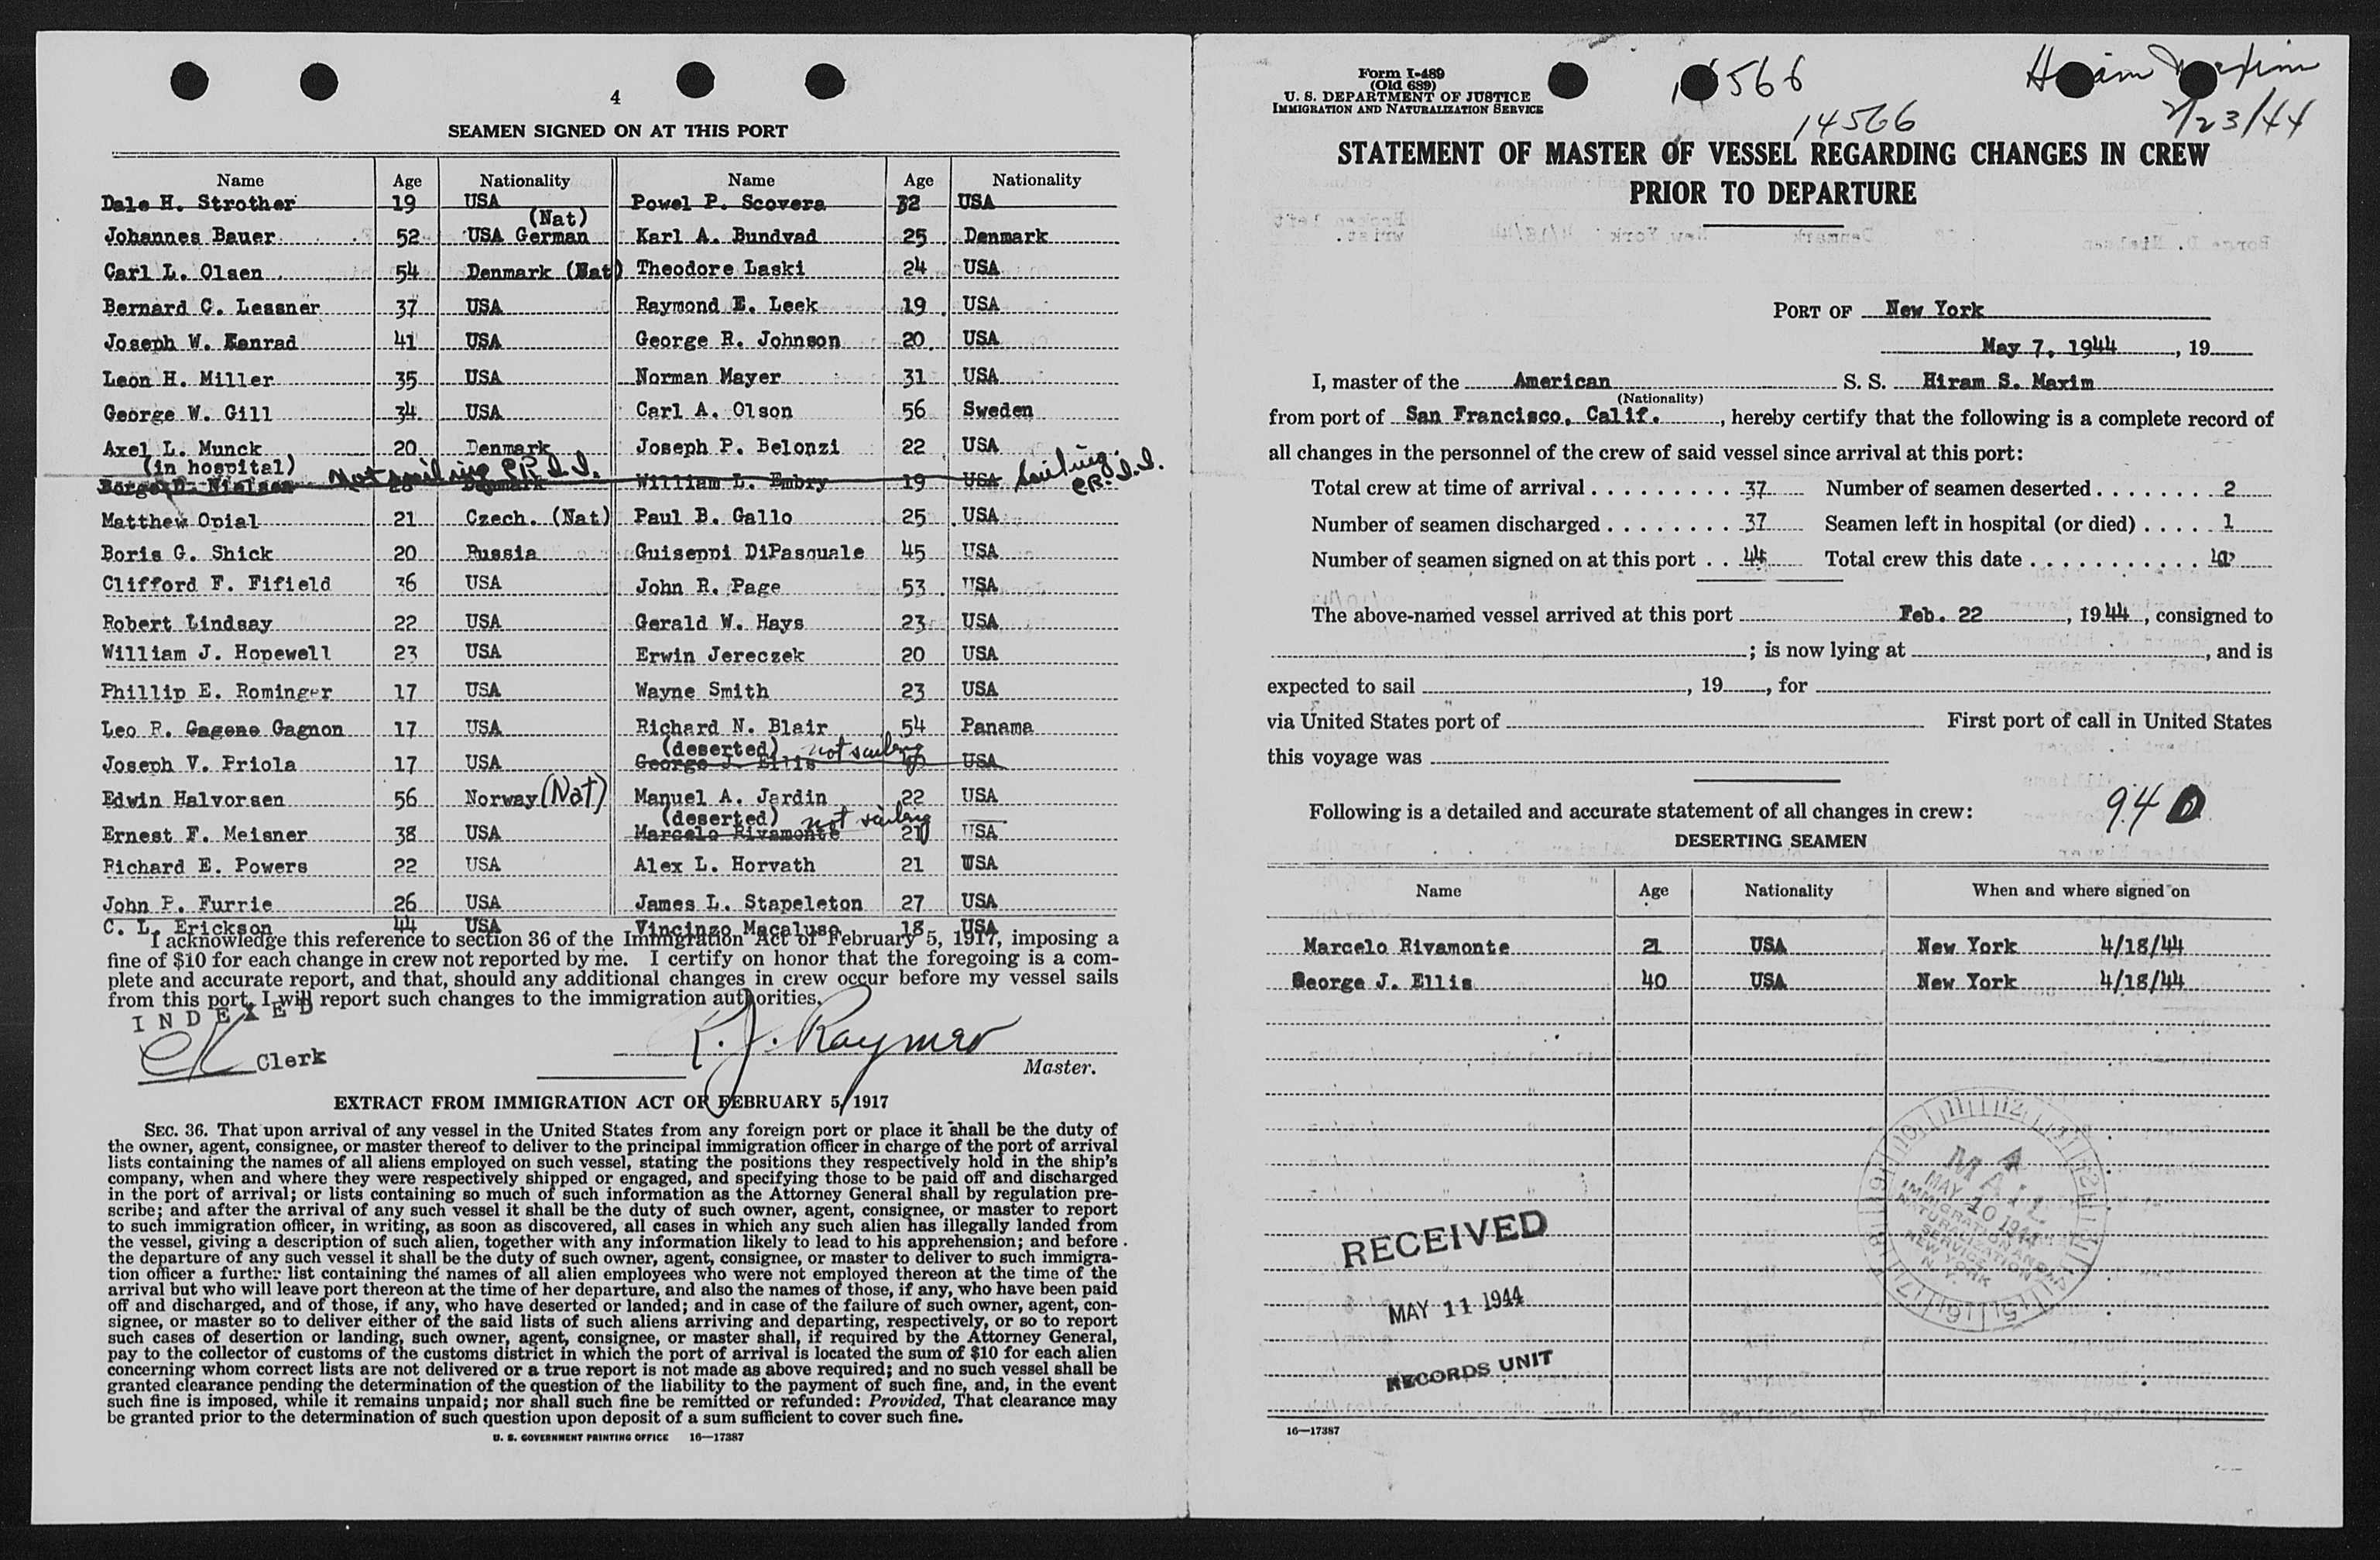 4
SEAMEN SIGNED ON AT THIS PORT
Name Age Nationality Name Age Nationality
Dale H. Strother 19 USA Powel P. Scovera 32 USA
(Nat)
Johannes Bauer 52 USA German Karl A. Bundvad 25 Denmark
Carl L. Olsen 54 Denmark (Nat) Theodore Laski 24 USA
Bernard C. Lessner 37 USA Raymond E. Leek 19 USA
Joseph W. Kenrad 41 USA George R. Johnson 20 USA
Leon H. Miller 35 USA Norman Mayer 31 USA
George W. Gill 34 USA Carl A. Olson 56 Sweden
Axel L. Munck 20 Denmark Joseph P. Belonzi 22 USA
(in hospital) Not sailing Sailing
Borge D. Nielsen Denmark William L. Embry 19 USA
Matthew Opial 21 Czech. (Nat) Paul B. Gallo 25 USA
Boris G. Shick 20 Russia Guiseppi DiPasquale 45 USA
Clifford F. Fifield 36 USA John R. Page 53 USA
Robert Lindsay 22 USA Gerald W. Hays 23 USA
William J. Hopewell 23 USA Erwin Jereczek 20 USA
Phillip E. Rominger 17 USA Wayne Smith 23 USA
Leo R. Gagene Gagnon 17 USA Richard N. Blair 54 Panama
(deserted) not sailing
Joseph V. Priola 17 USA George J. Ellis USA
Edwin Halvorsen 56 Norway (Nat) Manuel A. Jardin 22 USA
(deserted) not sailing
Ernest F. Meisner 38 USA Marcelo Rivamonte 21 USA
Richard E. Powers 22 USA Alex L. Horvath 21 USA
John P. Furrie 26 USA James L. Stapeleton 27 USA
C. L. Erickson 44 USA Vincinzo Macaluso 18 USA
I acknowledge this reference to section 36 of the Immigration Act of February 5, 1917, imposing a
fine of $10 for each change in crew not reported by me. I certify on honor that the foregoing is a com-
plete and accurate report, and that, should any additional changes in crew occur before my vessel sails
from this port, I will report such changes to the immigration authorities.
INDEXED
CK Clerk
R. J. Raymer
Master.
EXTRACT FROM IMMIGRATION ACT OF FEBRUARY 5, 1917
SEC. 36. That upon arrival of any vessel in the United States from any foreign port or place it shall be the duty of
the owner, agent, consignee, or master thereof to deliver to the principal immigration officer in charge of the port of arrival
lists containing the names of all aliens employed on such vessel, stating the positions they respectively hold in the ship's
company, when and where they were respectively shipped or engaged, and specifying those to be paid off and discharged
in the port of arrival; or lists containing so much of such information as the Attorney General shall by regulation pre-
scribe; and after the arrival of any such vessel it shall be the duty of such owner, agent, consignee, or master to report
to such immigration officer, in writing, as soon as discovered, all cases in which any such alien has illegally landed from
the vessel, giving a description of such alien, together with any information likely to lead to his apprehension; and before
the departure of any such vessel it shall be the duty of such owner, agent, consignee, or master to deliver to such immigra-
tion officer a further list containing the names of all alien employees who were not employed thereon at the time of the
arrival but who will leave port thereon at the time of her departure, and also the names of those, if any, who have been paid
off and discharged, and of those, if any, who have deserted or landed; and in case of the failure of such owner, agent, con-
signee, or master so to deliver either of the said lists of such aliens arriving and departing, respectively, or so to report
such cases of desertion or landing, such owner, agent, consignee, or master shall, if required by the Attorney General,
pay to the collector of customs of the customs district in which the port of arrival is located the sum of $10 for each alien
concerning whom correct lists are not delivered or a true report is not made as above required; and no such vessel shall be
granted clearance pending the determination of the question of the liability to the payment of such fine, and, in the event
such fine is imposed, while it remains unpaid; nor shall such fine be remitted or refunded: Provided, That clearance may
be granted prior to the determination of such question upon deposit of a sum sufficient to cover such fine.
U. S. GOVERNMENT PRINTING OFFICE 16—17387
Form I-489
(Old 689)
U. S. DEPARTMENT OF JUSTICE
IMMIGRATION AND NATURALIZATION SERVICE
566
14566
2/23/44
STATEMENT OF MASTER OF VESSEL REGARDING CHANGES IN CREW
PRIOR TO DEPARTURE
PORT OF New York
May 7, 1944, 19
I, master of the American S. S. Hiram S. Maxim
(Nationality)
from port of San Francisco, Calif., hereby certify that the following is a complete record of
all changes in the personnel of the crew of said vessel since arrival at this port:
Total crew at time of arrival 37 Number of seamen deserted 2
Number of seamen discharged 37 Seamen left in hospital (or died) 1
Number of seamen signed on at this port 44 Total crew this date
The above-named vessel arrived at this port Feb. 22, 1944, consigned to
; is now lying at , and is
expected to sail , 19 , for
via United States port of First port of call in United States
this voyage was
Following is a detailed and accurate statement of all changes in crew:
940
DESERTING SEAMEN
Name Age Nationality When and where signed on
Marcelo Rivamonte 21 USA New York 4/18/44
George J. Ellis 40 USA New York 4/18/44
MAIL
MAY 10 1944
IMMIGRATION AND
NATURALIZATION
SERVICE
NEW YORK
N. Y.
RECEIVED
MAY 11 1944
RECORDS UNIT
16—17387